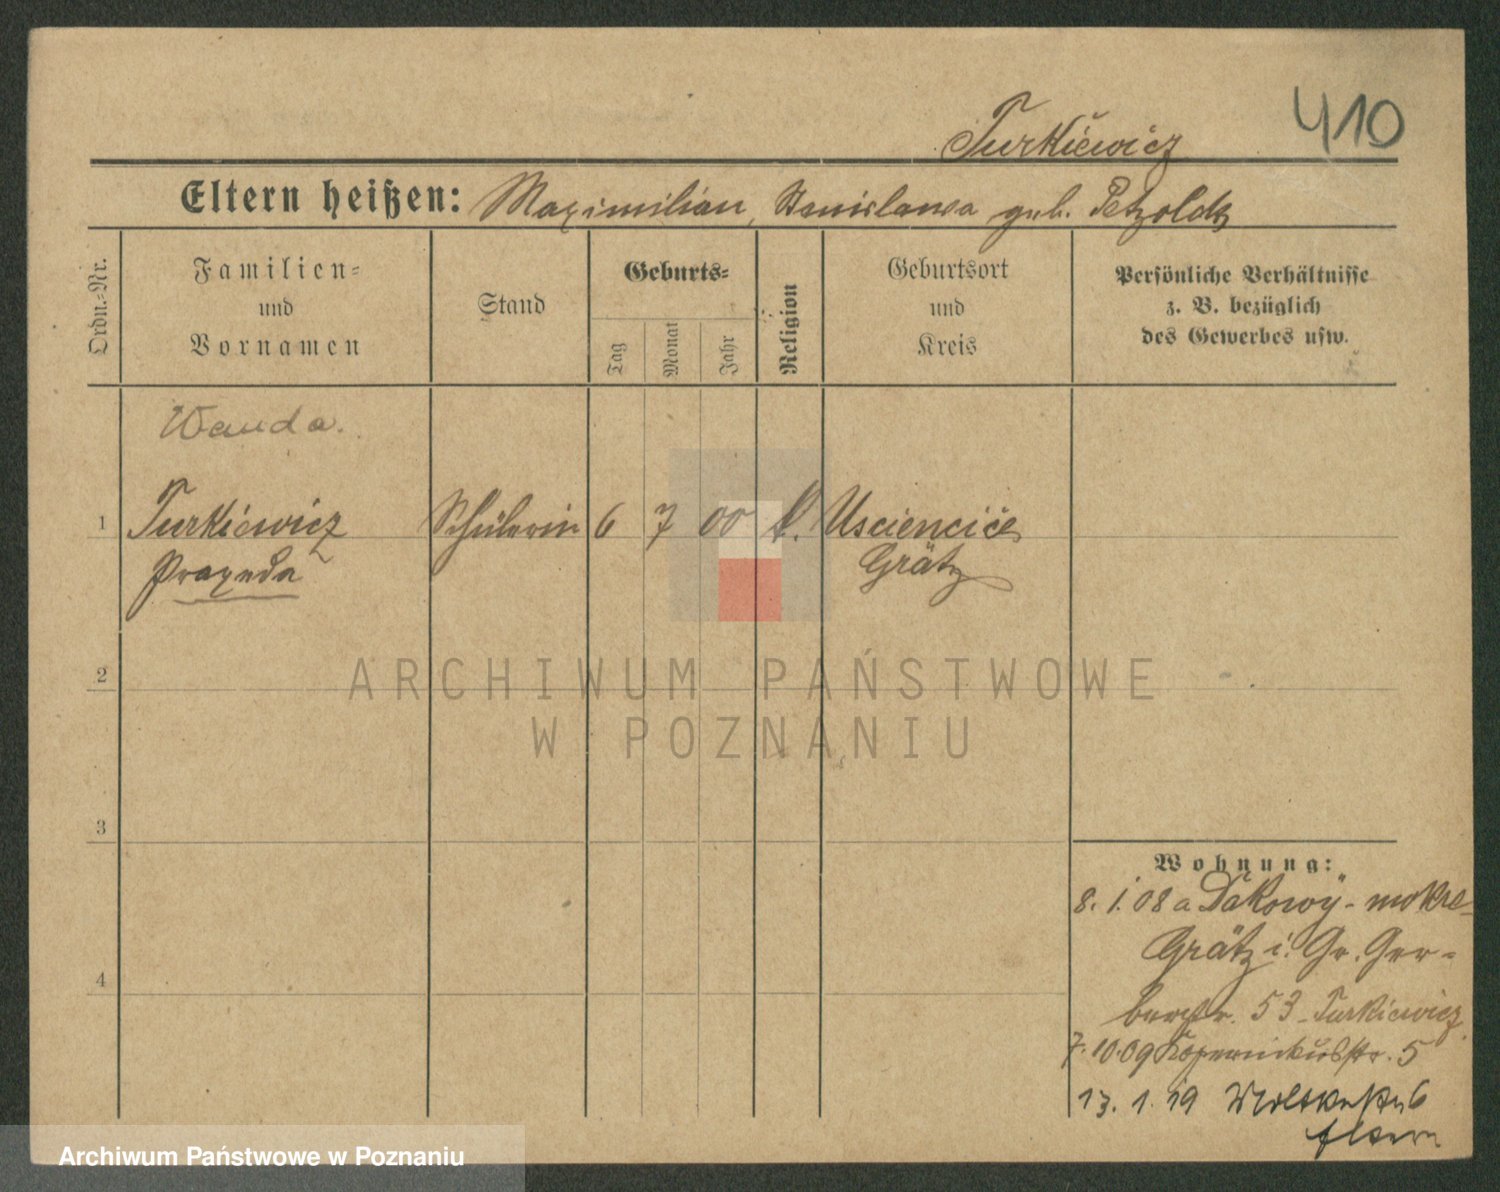 410
Turkiewicz
Eltern heißen: Maximilian, Stanislawa geb. Petzoldt
Ordn.-Nr.
Familien-
und
Vornamen
Stand
Geburts-
Tag
Monat
Jahr
Religion
Geburtsort
und
Kreis
Persönliche Verhältnisse
z. B. bezüglich
des Gewerbes usw.
Wanda.
1 Turkiewicz Schülerin 6 7 00 k. Usciencice
Praxeda Grätz
2
3
4
ARCHIWUM PAŃSTWOWE
W POZNANIU
Wohnung:
8. 1. 08 a Dakowy-mokre-
Grätz i. Gr. Ger-
berstr. 53 - Turkiewicz
7. 10. 09 Kopernikusstr. 5
13. 1. 19 Moltkestr 6
Eltern
Archiwum Państwowe w Poznaniu